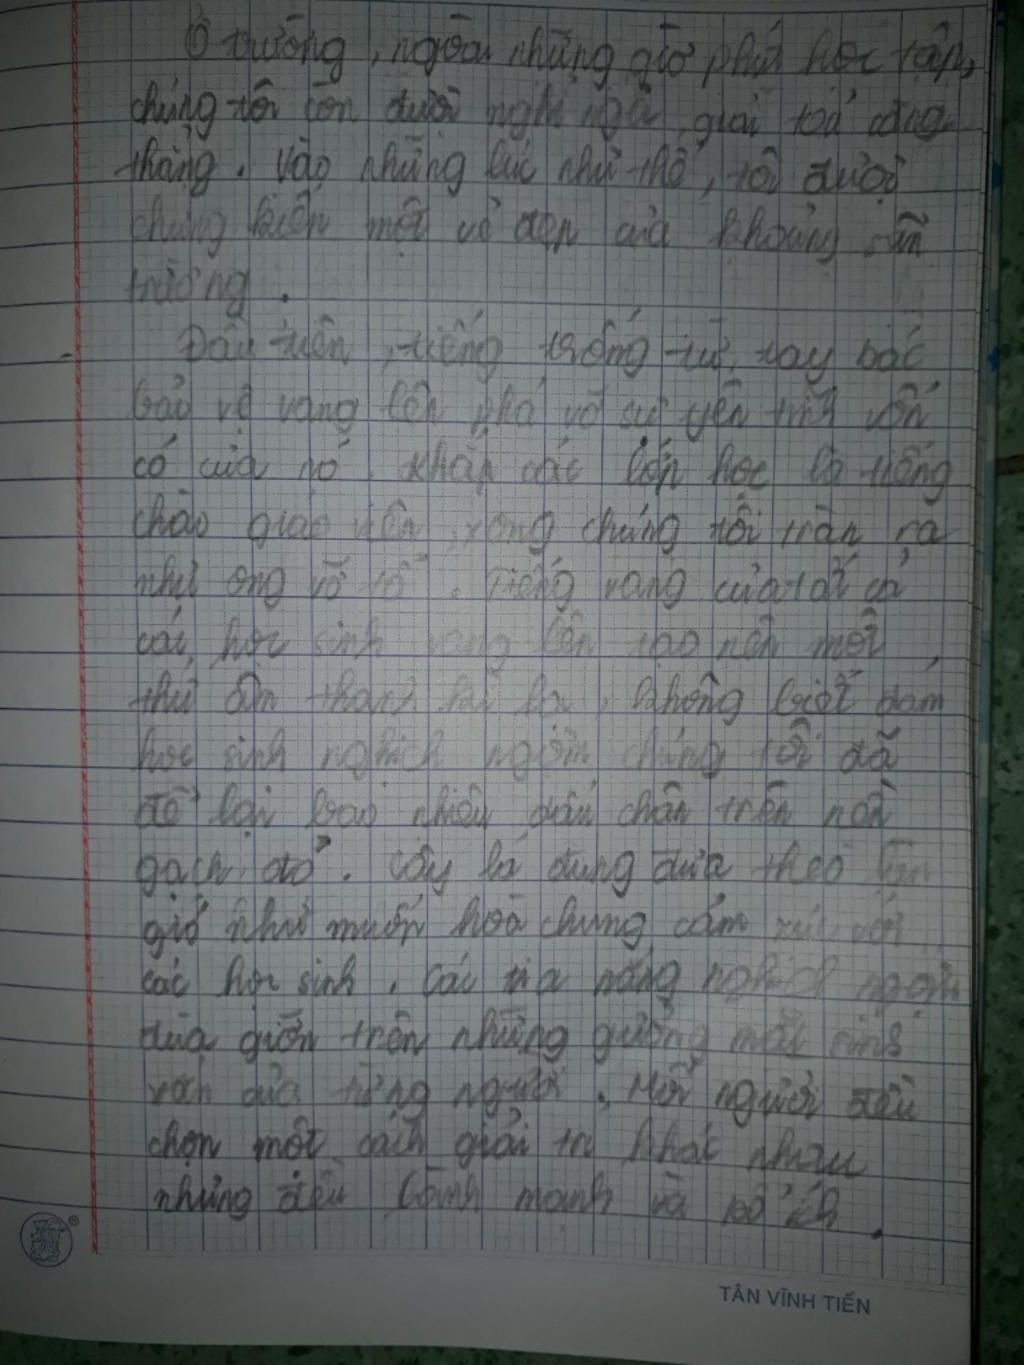 Ở trường, ngoài những giờ phút học tập,
chúng tôi còn được nghỉ ngơi, giải toả căng
thẳng. Vào những lúc như thế, tôi được
chứng kiến một vẻ đẹp của khoảng sân
trường.
Đầu tiên, tiếng trống từ tay bác
bảo vệ vang lên phá vỡ sự yên tĩnh vốn
có của nó. Khắp các lớp học là tiếng
chào giáo viên, xong chúng tôi tràn ra
như ong vỡ tổ. Tiếng vang của tất cả
các học sinh vang lên tạo nên một
thứ âm thanh lạ, không biết đám
học sinh nghịch ngợm chúng tôi đã
để lại bao nhiêu dấu chân trên nền
gạch đỏ. Cây lá đung đưa theo làn
gió như muốn hoà chung cảm xúc với
các học sinh. Các tia nắng nghịch ngợm
đùa giỡn trên những gương mặt
của từng người. Mỗi người đều
chọn một cách giải trí khác nhau
nhưng đều lành mạnh và bổ ích.
TÂN VĨNH TIẾN